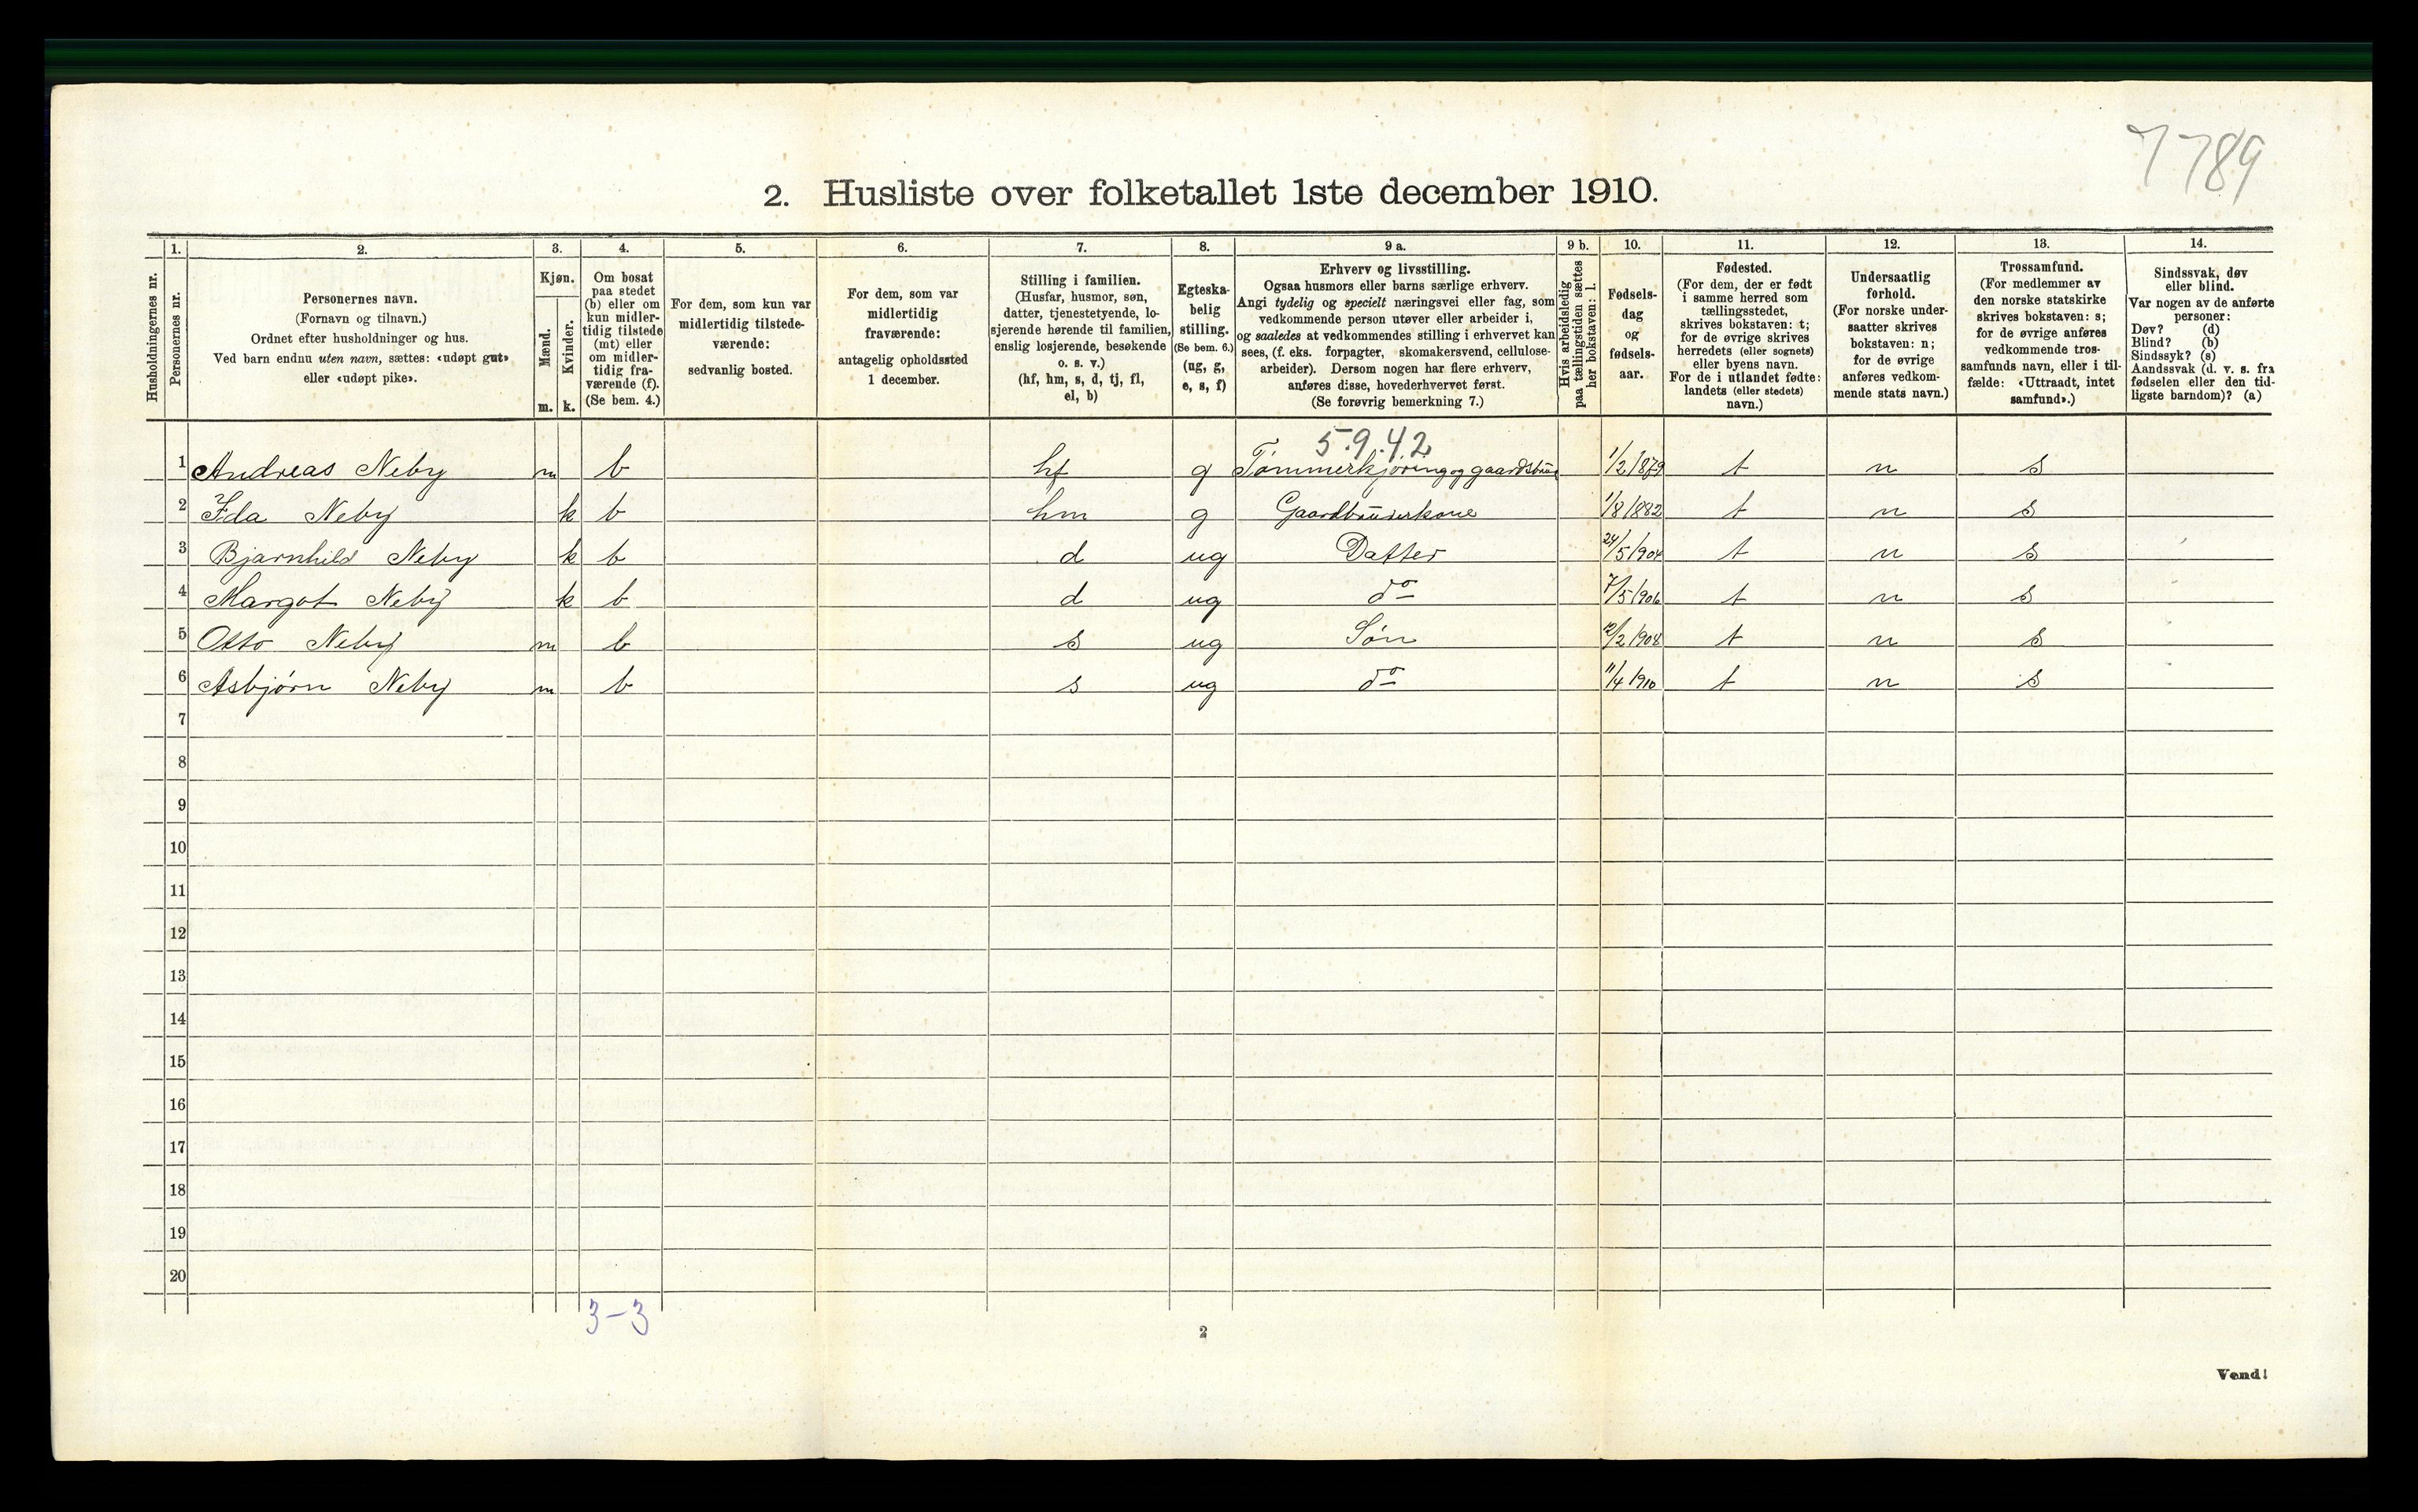 7789
2. Husliste over folketallet 1ste december 1910.
Husholdningernes nr.
1.
Personernes nr.
2.
Personernes navn.
(Fornavn og tilnavn.)
Ordnet efter husholdninger og hus.
Ved barn endnu uten navn, sættes: «udøpt gut»
eller «udøpt pike».
3.
Kjøn.
Mænd.
m.
Kvinder.
k.
4.
Om bosat
paa stedet
(b) eller om
kun midler-
tidig tilstede
(mt) eller
om midler-
tidig fra-
værende (f).
(Se bem. 4.)
5.
For dem, som kun var
midlertidig tilstede-
værende:
sedvanlig bosted.
6.
For dem, som var
midlertidig
fraværende:
antagelig opholdssted
1 december.
7.
Stilling i familien.
(Husfar, husmor, søn,
datter, tjenestetyende, lo-
sjerende hørende til familien,
enslig losjerende, besøkende
o. s. v.)
(hf, hm, s, d, tj, fl,
el, b)
8.
Egteska-
belig
stilling.
(Se bem. 6.)
(ug, g,
e, s, f)
9 a.
Erhverv og livsstilling.
Ogsaa husmors eller barns særlige erhverv.
Angi tydelig og specielt næringsvei eller fag, som
vedkommende person utøver eller arbeider i,
og saaledes at vedkommendes stilling i erhvervet kan
sees, (f. eks. forpagter, skomakersvend, cellulose-
arbeider). Dersom nogen har flere erhverv,
anføres disse, hovederhvervet først.
(Se forøvrig bemerkning 7.)
9 b.
Hvis arbeidsledig
paa tællingstiden sættes
her bokstaven: l.
10.
Fødsels-
dag
og
fødsels-
aar.
11.
Fødested.
(For dem, der er født
i samme herred som
tællingsstedet,
skrives bokstaven: t;
for de øvrige skrives
herredets (eller sognets)
eller byens navn.
For de i utlandet fødte:
landets (eller stedets)
navn.)
12.
Undersaatlig
forhold.
(For norske under-
saatter skrives
bokstaven: n;
for de øvrige
anføres vedkom-
mende stats navn.)
13.
Trossamfund.
(For medlemmer av
den norske statskirke
skrives bokstaven: s;
for de øvrige anføres
vedkommende tros-
samfunds navn, eller i til-
fælde: «Uttraadt, intet
samfund».)
14.
Sindssvak, døv
eller blind.
Var nogen av de anførte
personer:
Døv? (d)
Blind? (b)
Sindssyk? (s)
Aandssvak (d. v. s. fra
fødselen eller den tid-
ligste barndom)? (a)
5.9.42
1 Andreas Neby m b hf g Tømmerkjøring og gaardsbru 1/2 1879 t n s
2 Ida Neby k b hm g Gaardbruserkone 1/8 1882 t n s
3 Bjarnhild Neby k b d ug Datter 24/5 1904 t n s
4 Margot Neby k b d ug do 7/5 1906 t n s
5 Otto Neby m b s ug Søn 12/2 1908 t n s
6 Asbjørn Neby m b s ug do 11/4 1910 t n s
7
8
9
10
11
12
13
14
15
16
17
18
19
20
3-3
2
Vend!